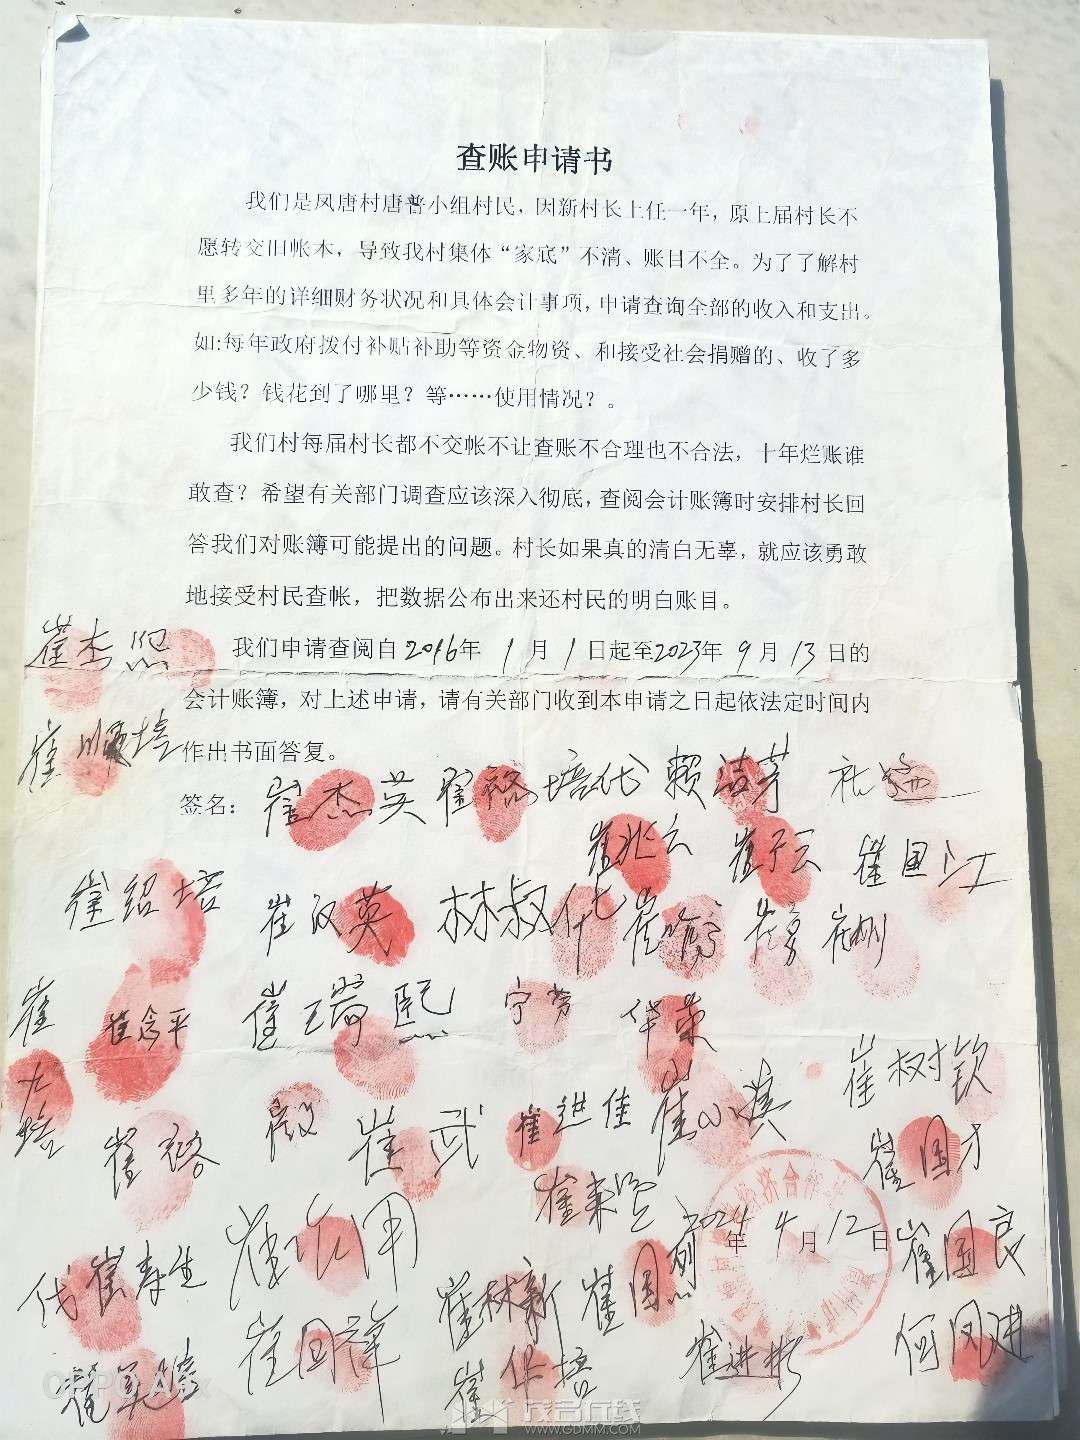 查账申请书
我们是凤唐村唐普小组村民，因新村长上任一年，原上届村长不
愿转交旧帐本，导致我村集体“家底”不清、账目不全。为了了解村
里多年的详细财务状况和具体会计事项，申请查询全部的收入和支出。
如:每年政府拨付补贴补助等资金物资、和接受社会捐赠的、收了多
少钱？钱花到了哪里？等……使用情况？。
我们村每届村长都不交帐不让查账不合理也不合法，十年烂账谁
敢查？希望有关部门调查应该深入彻底，查阅会计账簿时安排村长回
答我们对账簿可能提出的问题。村长如果真的清白无辜，就应该勇敢
地接受村民查帐，把数据公布出来还村民的明白账目。
崔杰熙
我们申请查阅自2016年1月1日起至2023年9月13日的
会计账簿，对上述申请，请有关部门收到本申请之日起依法定时间内
崔顺培
作出书面答复。
签名：
崔杰英
赖洁芳
崔兆云
崔子云
崔国江
崔绍培
崔汉英
林叔
崔瑞熙
宁芳
华荣
崔念平
崔树钦
崔武
崔进佳
崔小燕
崔国才
崔来
2024年4月12日
崔国良
代崔寿生
崔树新
崔国
崔国辉
崔华培
崔进彬
何凤进
OPPO A
茂名在线
WWW.GDMM.COM